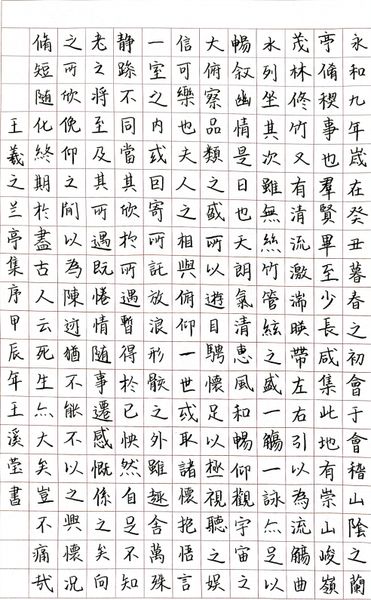 永和九年歲在癸丑暮春之初會于會稽山陰之蘭
亭脩稧事也羣賢畢至少長咸集此地有崇山峻嶺
茂林修竹又有清流激湍暎帶左右引以為流觴曲
水列坐其次雖無絲竹管絃之盛一觴一詠亦足以
暢敘幽情是日也天朗氣清惠風和暢仰觀宇宙之
大俯察品類之盛所以遊目騁懷足以極視聽之娛
信可樂也夫人之相與俯仰一世或取諸懷抱悟言
一室之內或因寄所託放浪形骸之外雖趣舍萬殊
静躁不同當其欣於所遇暫得於己快然自足不知
老之將至及其所遇既惓情隨事遷感慨係之矣向
之所欣俛仰之間以為陳迹猶不能不以之興懷況
脩短隨化終期於盡古人云死生亦大矣豈不痛哉
王羲之兰亭集序甲辰年王溪莹書